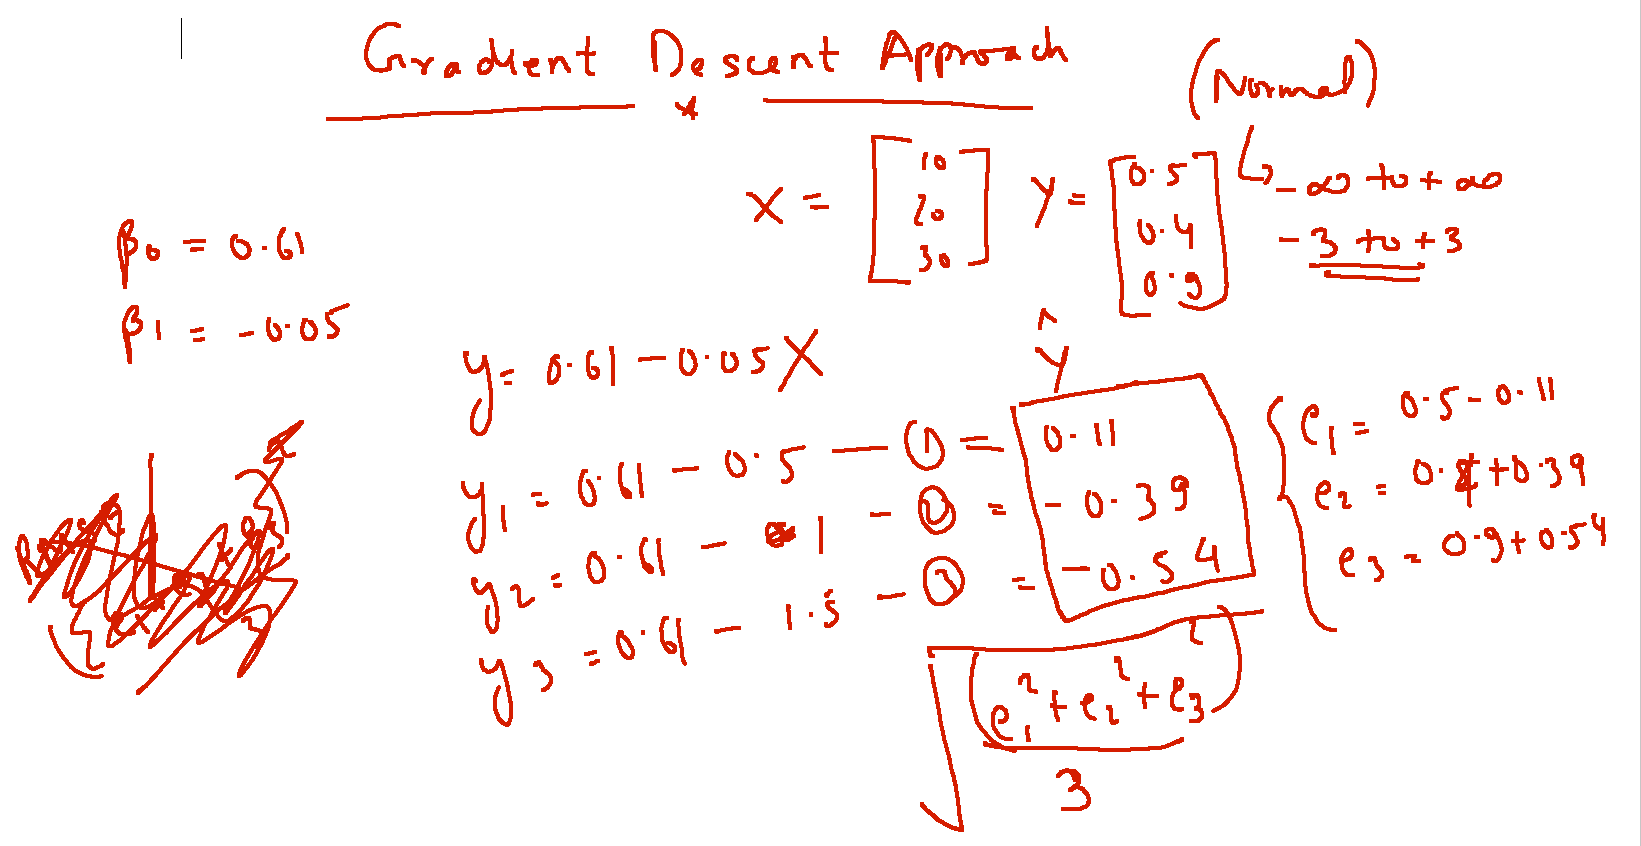 Gradient Descent Approach
(Normal)
X = [10 20 30] Y = [0.5 0.4 0.9]
-∞ to +∞
-3 to +3
β0 = 0.61
β1 = -0.05
y = 0.61 - 0.05X
Ŷ
y1 = 0.61 - 0.5 - ① = 0.11
y2 = 0.61 - 1 - ② = -0.39
y3 = 0.61 - 1.5 - ③ = -0.54
e1 = 0.5 - 0.11
e2 = 0.4 + 0.39
e3 = 0.9 + 0.54
√((e1² + e2² + e3²)/3)